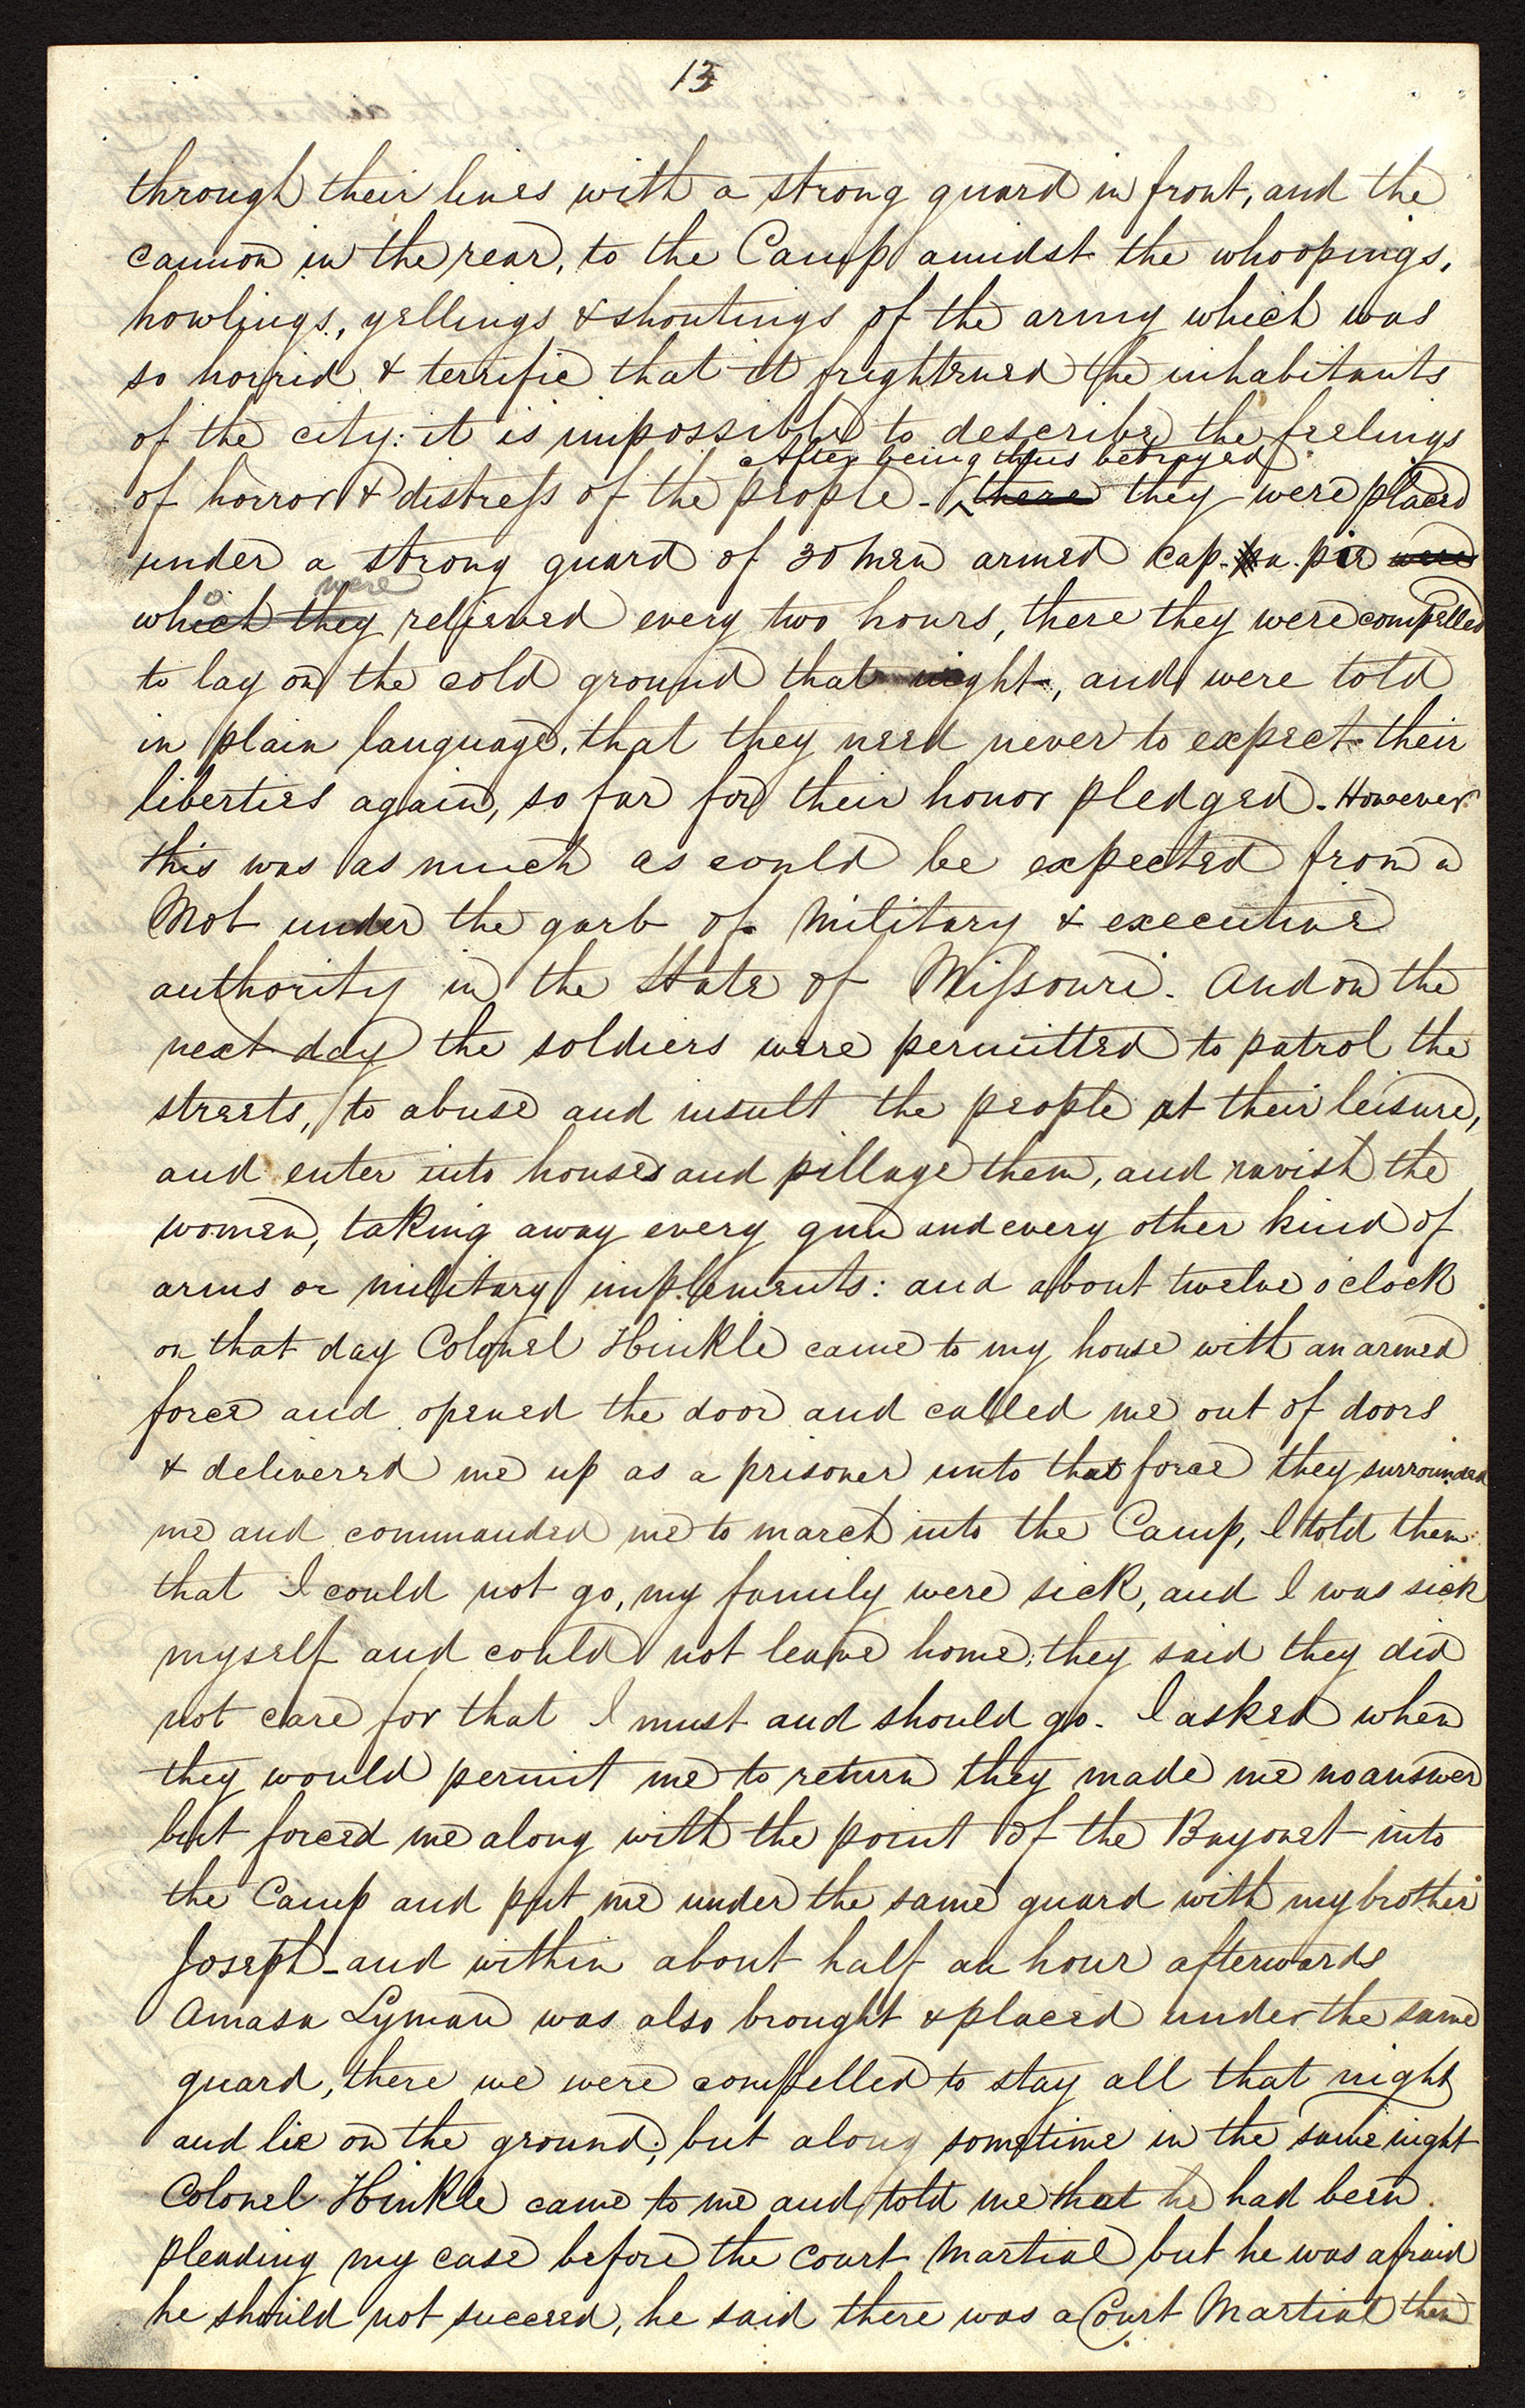 13
through their lines with a strong guard in front, and the
cannon in the rear, to the Camp amidst the whoopings,
howlings, yellings & shoutings of the army which was
so horrid & terrific that it frightened the inhabitants
of the city: it is impossible to describe the feelings
After being thus betrayed
of horror & distress of the people - there they were placed
under a strong guard of 30 men armed cap. a. pie were
were
which they relieved every two hours, there they were compelled
to lay on the cold ground that night, and were told
in plain language, that they need never to expect their
liberties again, so far for their honor pledged. However
this was as much as could be expected from a
Mob under the garb of Military & executive
authority in the State of Missouri. And on the
next day the soldiers were permitted to patrol the
streets, to abuse and insult the people at their leisure,
and enter into houses and pillage them, and ravish the
women, taking away every gun and every other kind of
arms or military implements: and about twelve o clock
on that day Colonel Hinkle came to my house with an armed
force and opened the door and called me out of doors
& delivered me up as a prisoner unto that force they surrounded
me and commanded me to march into the Camp, I told them
that I could not go, my family were sick, and I was sick
myself and could not leave home; they said they did
not care for that I must and should go. I asked when
they would permit me to return they made me no answer
but forced me along with the point of the Bayonet into
the Camp and put me under the same guard with my brother
Joseph - and within about half an hour afterwards
Amasa Lyman was also brought & placed under the same
guard, there we were compelled to stay all that night
and lie on the ground; but along sometime in the same night
Colonel Hinkle came to me and told me that he had been
pleading my case before the Court Martial but he was afraid
he should not succeed, he said there was a Court Martial then